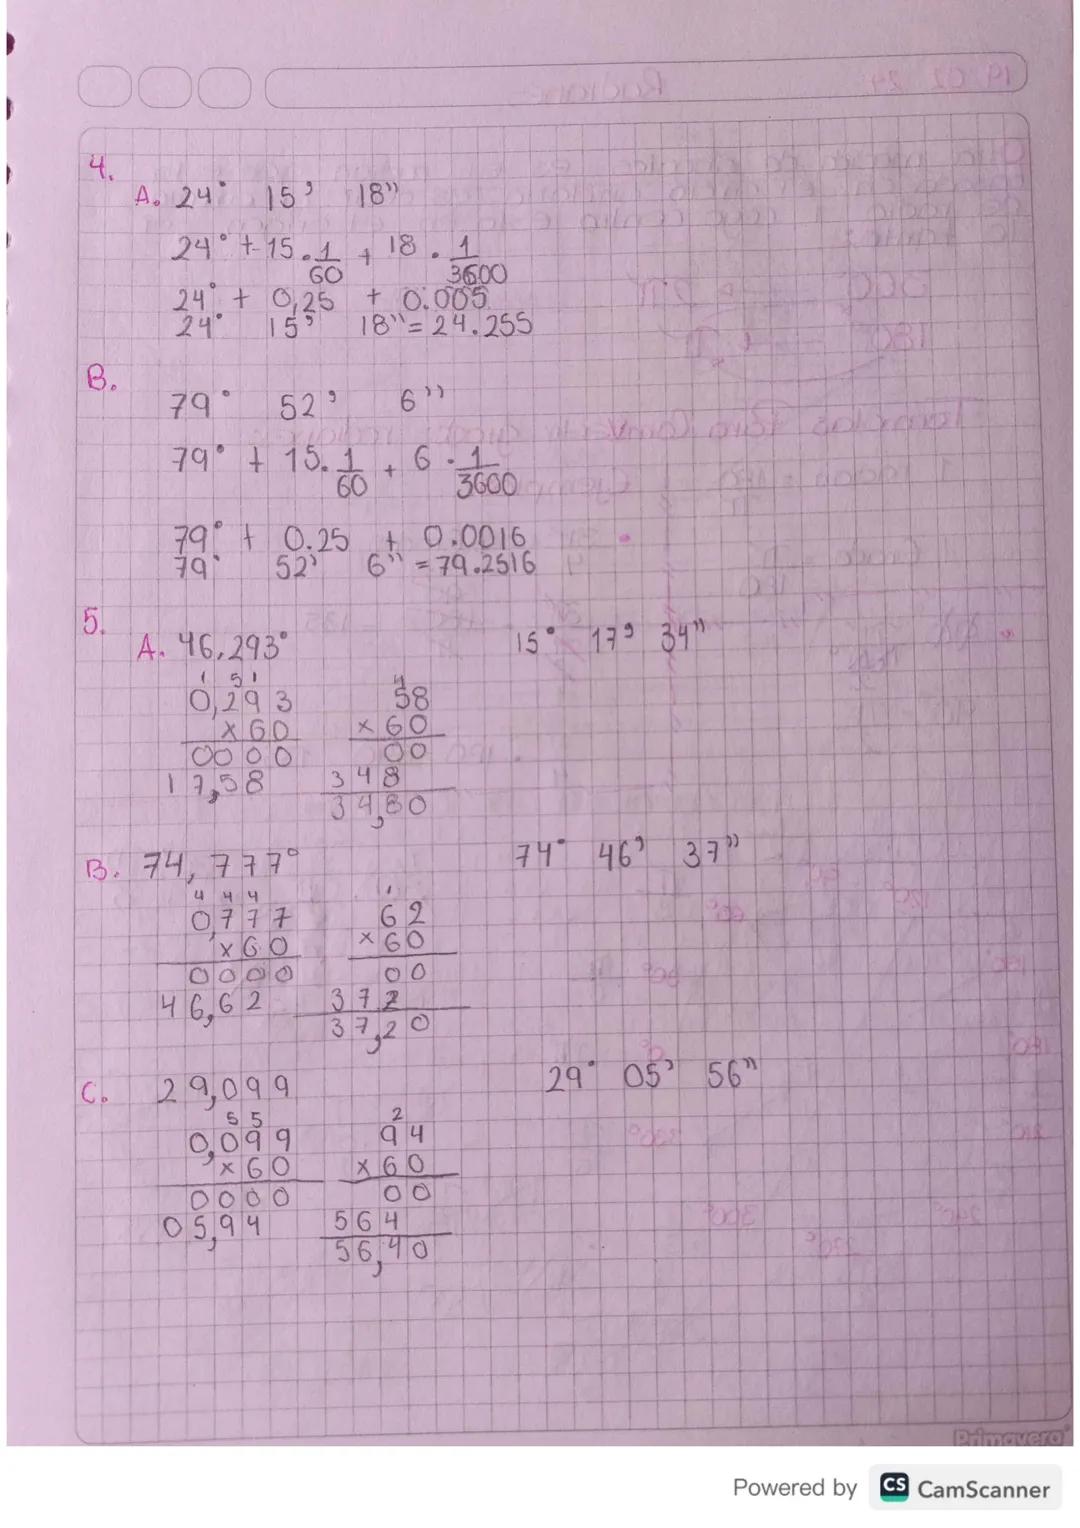 4.
A. 24° 15' 18''
24° + 15 . 1/60 + 18 . 1/3600
24° + 0,25 + 0.005
24° 15' 18'' = 24.255
B.
79° 52' 6''
79° + 15. 1/60 + 6 . 1/3600
79° + 0.25 + 0.0016
79° 52' 6'' = 79.2516
5.
A. 46,293° 15° 17' 34''
1 5 1 4
0,293 58
x60 x60
0000 00
17,58 348
34,80
B. 74,777° 74° 46' 37''
4 4 4 1
0,777 62
x60 x60
0000 00
46,62 372
37,20
C. 29,099 29° 05' 56''
5 5 2
0,099 94
x60 x60
0000 00
05,94 564
56,40
Primavera
Powered by CS CamScanner